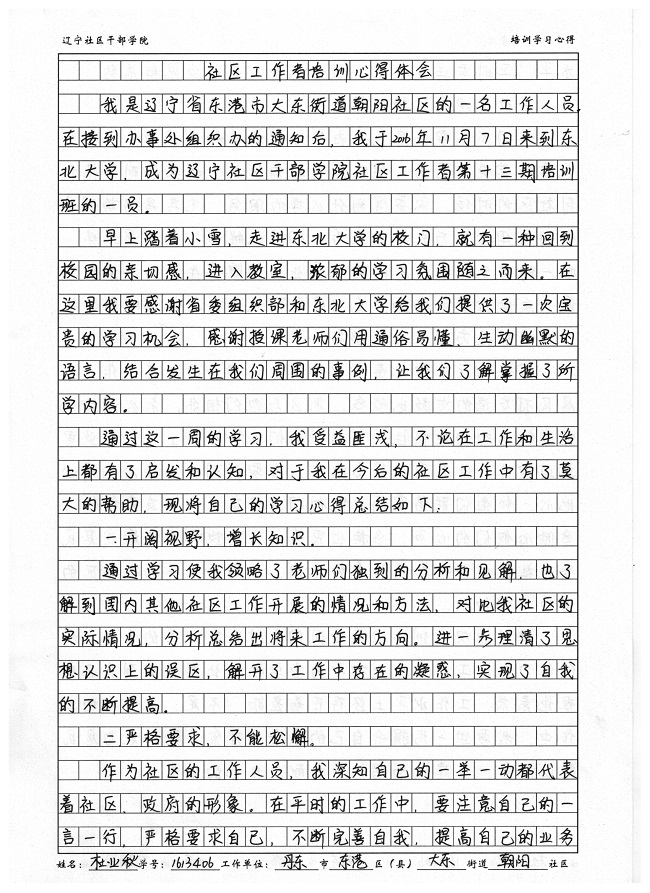 辽宁社区干部学院 培训学习心得
社区工作者培训心得体会
我是辽宁省东港市大东街道朝阳社区的一名工作人员,
在接到办事处组织办的通知后，我于2016年11月7日来到东
北大学，成为辽宁社区干部学院社区工作者第十三期培训
班的一员。
早上踏着小雪，走进东北大学的校门，就有一种回到
校园的亲切感，进入教室，浓郁的学习氛围随之而来。在
这里我要感谢省委组织部和东北大学给我们提供了一次宝
贵的学习机会，感谢授课老师们用通俗易懂、生动幽默的
语言，结合发生在我们周围的事例，让我们了解掌握了所
学内容。
通过这一周的学习，我受益匪浅，不论在工作和生活
上都有了启发和认知，对于我在今后的社区工作中有了莫
大的帮助，现将自己的学习心得总结如下：
一.开阔视野，增长知识。
通过学习使我领略了老师们独到的分析和见解，也了
解到国内其他社区工作开展的情况和方法，对比我社区的
实际情况，分析总结出将来工作的方向。进一步理清了思
想认识上的误区，解开了工作中存在的疑惑，实现了自我
的不断提高。
二.严格要求，不能松懈。
作为社区的工作人员，我深知自己的一举一动都代表
着社区、政府的形象。在平时的工作中，要注意自己的一
言一行，严格要求自己，不断完善自我，提高自己的业务
姓名：杜业秋 学号：1613406 工作单位：丹东市东港区（县）大东街道朝阳社区